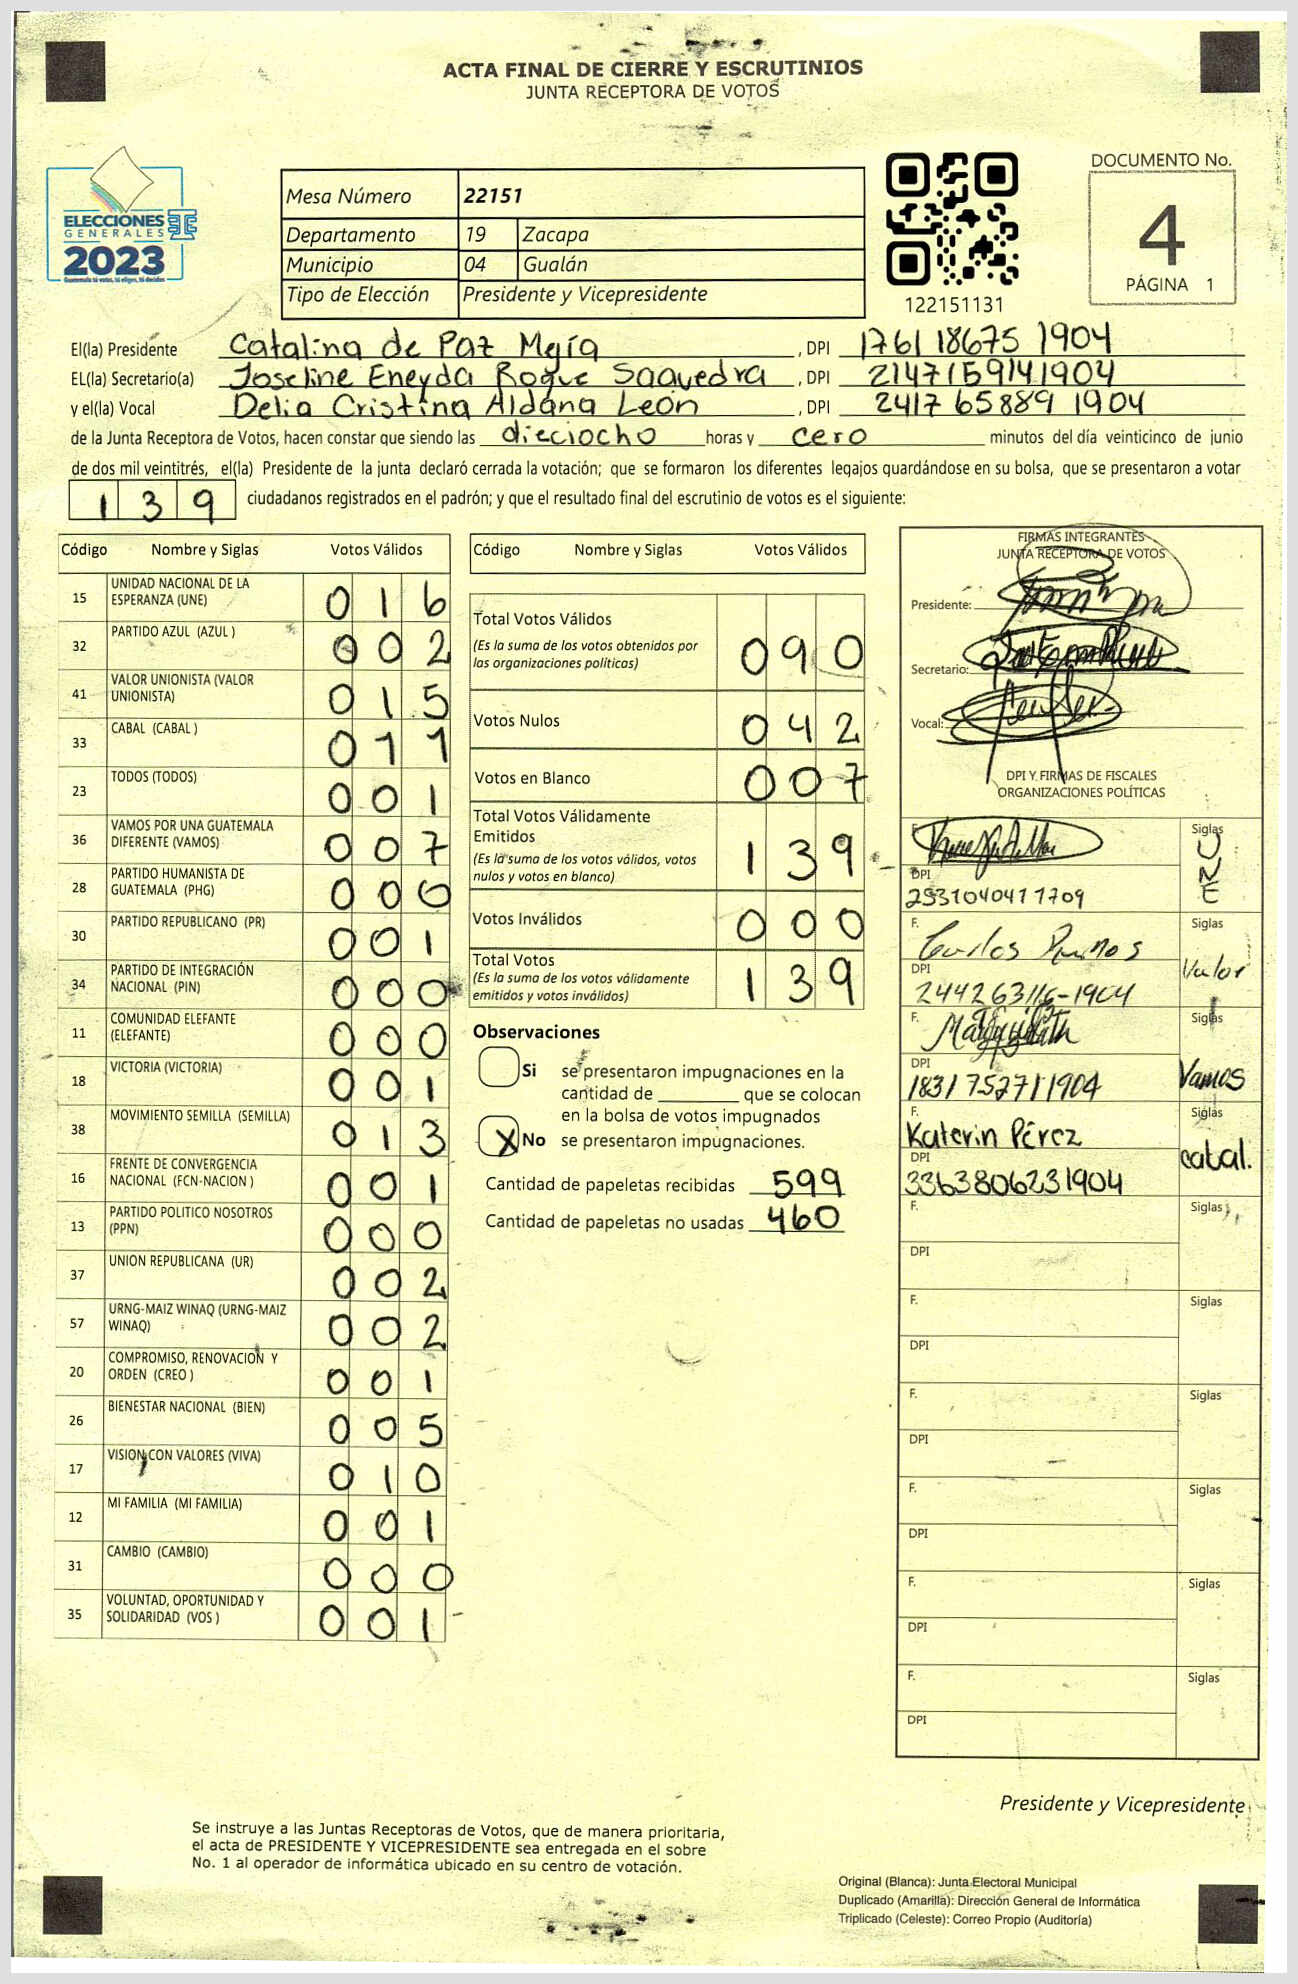 ACTA FINAL DE CIERRE Y ESCRUTINIOS
JUNTA RECEPTORA DE VOTOS
ELECCIONES
GENERALES
2023
Guatemala tú votas, tú eliges, tú decides
Mesa Número 22151
Departamento 19 Zacapa
Municipio 04 Gualán
Tipo de Elección Presidente y Vicepresidente
122151131
DOCUMENTO No.
4
PÁGINA 1
El(la) Presidente Catalina de Paz Mejía, DPI 1761 18675 1904
EL(la) Secretario(a) Joseline Eneyda Roque Saavedra, DPI 2147159141904
y el(la) Vocal Delia Cristina Aldana León, DPI 2417 65889 1904
de la Junta Receptora de Votos, hacen constar que siendo las dieciocho horas y cero minutos del día veinticinco de junio
de dos mil veintitrés, el(la) Presidente de la junta declaró cerrada la votación; que se formaron los diferentes legajos guardándose en su bolsa, que se presentaron a votar
139 ciudadanos registrados en el padrón; y que el resultado final del escrutinio de votos es el siguiente:
Código Nombre y Siglas Votos Válidos
15 UNIDAD NACIONAL DE LA ESPERANZA (UNE) 016
32 PARTIDO AZUL (AZUL ) 002
41 VALOR UNIONISTA (VALOR UNIONISTA) 015
33 CABAL (CABAL ) 011
23 TODOS (TODOS) 001
36 VAMOS POR UNA GUATEMALA DIFERENTE (VAMOS) 007
28 PARTIDO HUMANISTA DE GUATEMALA (PHG) 000
30 PARTIDO REPUBLICANO (PR) 001
34 PARTIDO DE INTEGRACIÓN NACIONAL (PIN) 000
11 COMUNIDAD ELEFANTE (ELEFANTE) 000
18 VICTORIA (VICTORIA) 001
38 MOVIMIENTO SEMILLA (SEMILLA) 013
16 FRENTE DE CONVERGENCIA NACIONAL (FCN-NACION ) 001
13 PARTIDO POLITICO NOSOTROS (PPN) 000
37 UNION REPUBLICANA (UR) 002
57 URNG-MAIZ WINAQ (URNG-MAIZ WINAQ) 002
20 COMPROMISO, RENOVACION Y ORDEN (CREO ) 001
26 BIENESTAR NACIONAL (BIEN) 005
17 VISION CON VALORES (VIVA) 010
12 MI FAMILIA (MI FAMILIA) 001
31 CAMBIO (CAMBIO) 000
35 VOLUNTAD, OPORTUNIDAD Y SOLIDARIDAD (VOS ) 001
Código Nombre y Siglas Votos Válidos
Total Votos Válidos
(Es la suma de los votos obtenidos por
las organizaciones políticas) 090
Votos Nulos 042
Votos en Blanco 007
Total Votos Válidamente
Emitidos
(Es la suma de los votos válidos, votos
nulos y votos en blanco) 139
Votos Inválidos 000
Total Votos
(Es la suma de los votos válidamente
emitidos y votos inválidos) 139
Observaciones
Si se presentaron impugnaciones en la
cantidad de ________ que se colocan
en la bolsa de votos impugnados
X No se presentaron impugnaciones.
Cantidad de papeletas recibidas 599
Cantidad de papeletas no usadas 460
FIRMAS INTEGRANTES
JUNTA RECEPTORA DE VOTOS
Presidente:
Secretario:
Vocal:
DPI Y FIRMAS DE FISCALES
ORGANIZACIONES POLÍTICAS
F. Siglas UNE
DPI
2531040411709
F. Carlos Siglas Valor
DPI
244263116-1904
F. Siglas Vamos
DPI
1831752711904
F. Siglas
Katerin Pérez cabal.
DPI
3363806231904
F. Siglas
DPI
F. Siglas
DPI
F. Siglas
DPI
F. Siglas
DPI
F. Siglas
DPI
F. Siglas
DPI
Presidente y Vicepresidente
Se instruye a las Juntas Receptoras de Votos, que de manera prioritaria,
el acta de PRESIDENTE Y VICEPRESIDENTE sea entregada en el sobre
No. 1 al operador de informática ubicado en su centro de votación.
Original (Blanca): Junta Electoral Municipal
Duplicado (Amarilla): Dirección General de Informática
Triplicado (Celeste): Correo Propio (Auditoría)